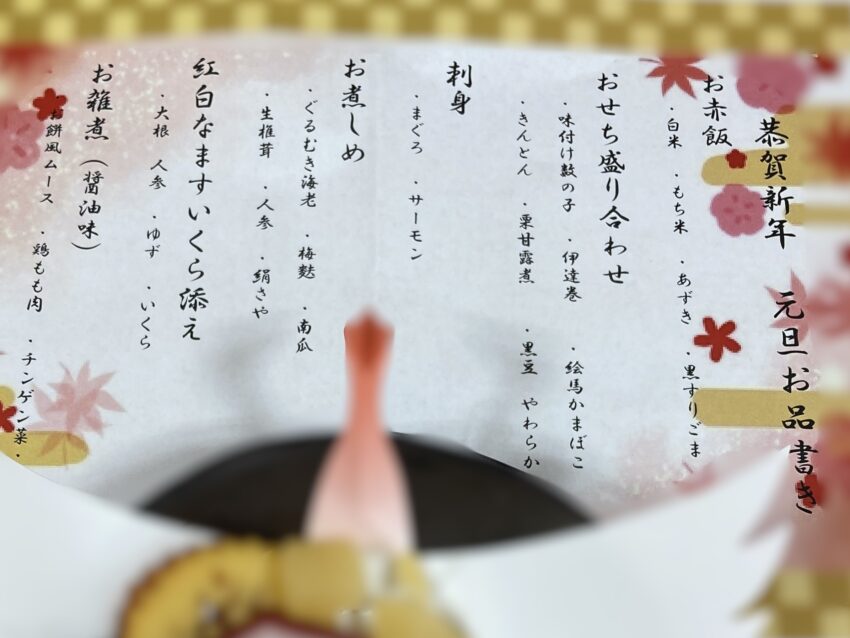 恭賀新年 元旦お品書き
お赤飯
・白米 ・もち米 ・あずき ・黒すりごま
おせち盛り合わせ
・味付け数の子 ・伊達巻 ・絵馬かまぼこ
・きんとん ・栗甘露煮 ・黒豆 やわらか
刺身
・まぐろ ・サーモン
お煮しめ
・ぐるむき海老 ・梅麩 ・南瓜
・生椎茸 ・人参 ・絹さや
紅白なますいくら添え
・大根 人参 ・ゆず ・いくら
お雑煮（醤油味）
お餅風ムース ・鶏もも肉 ・チンゲン菜・